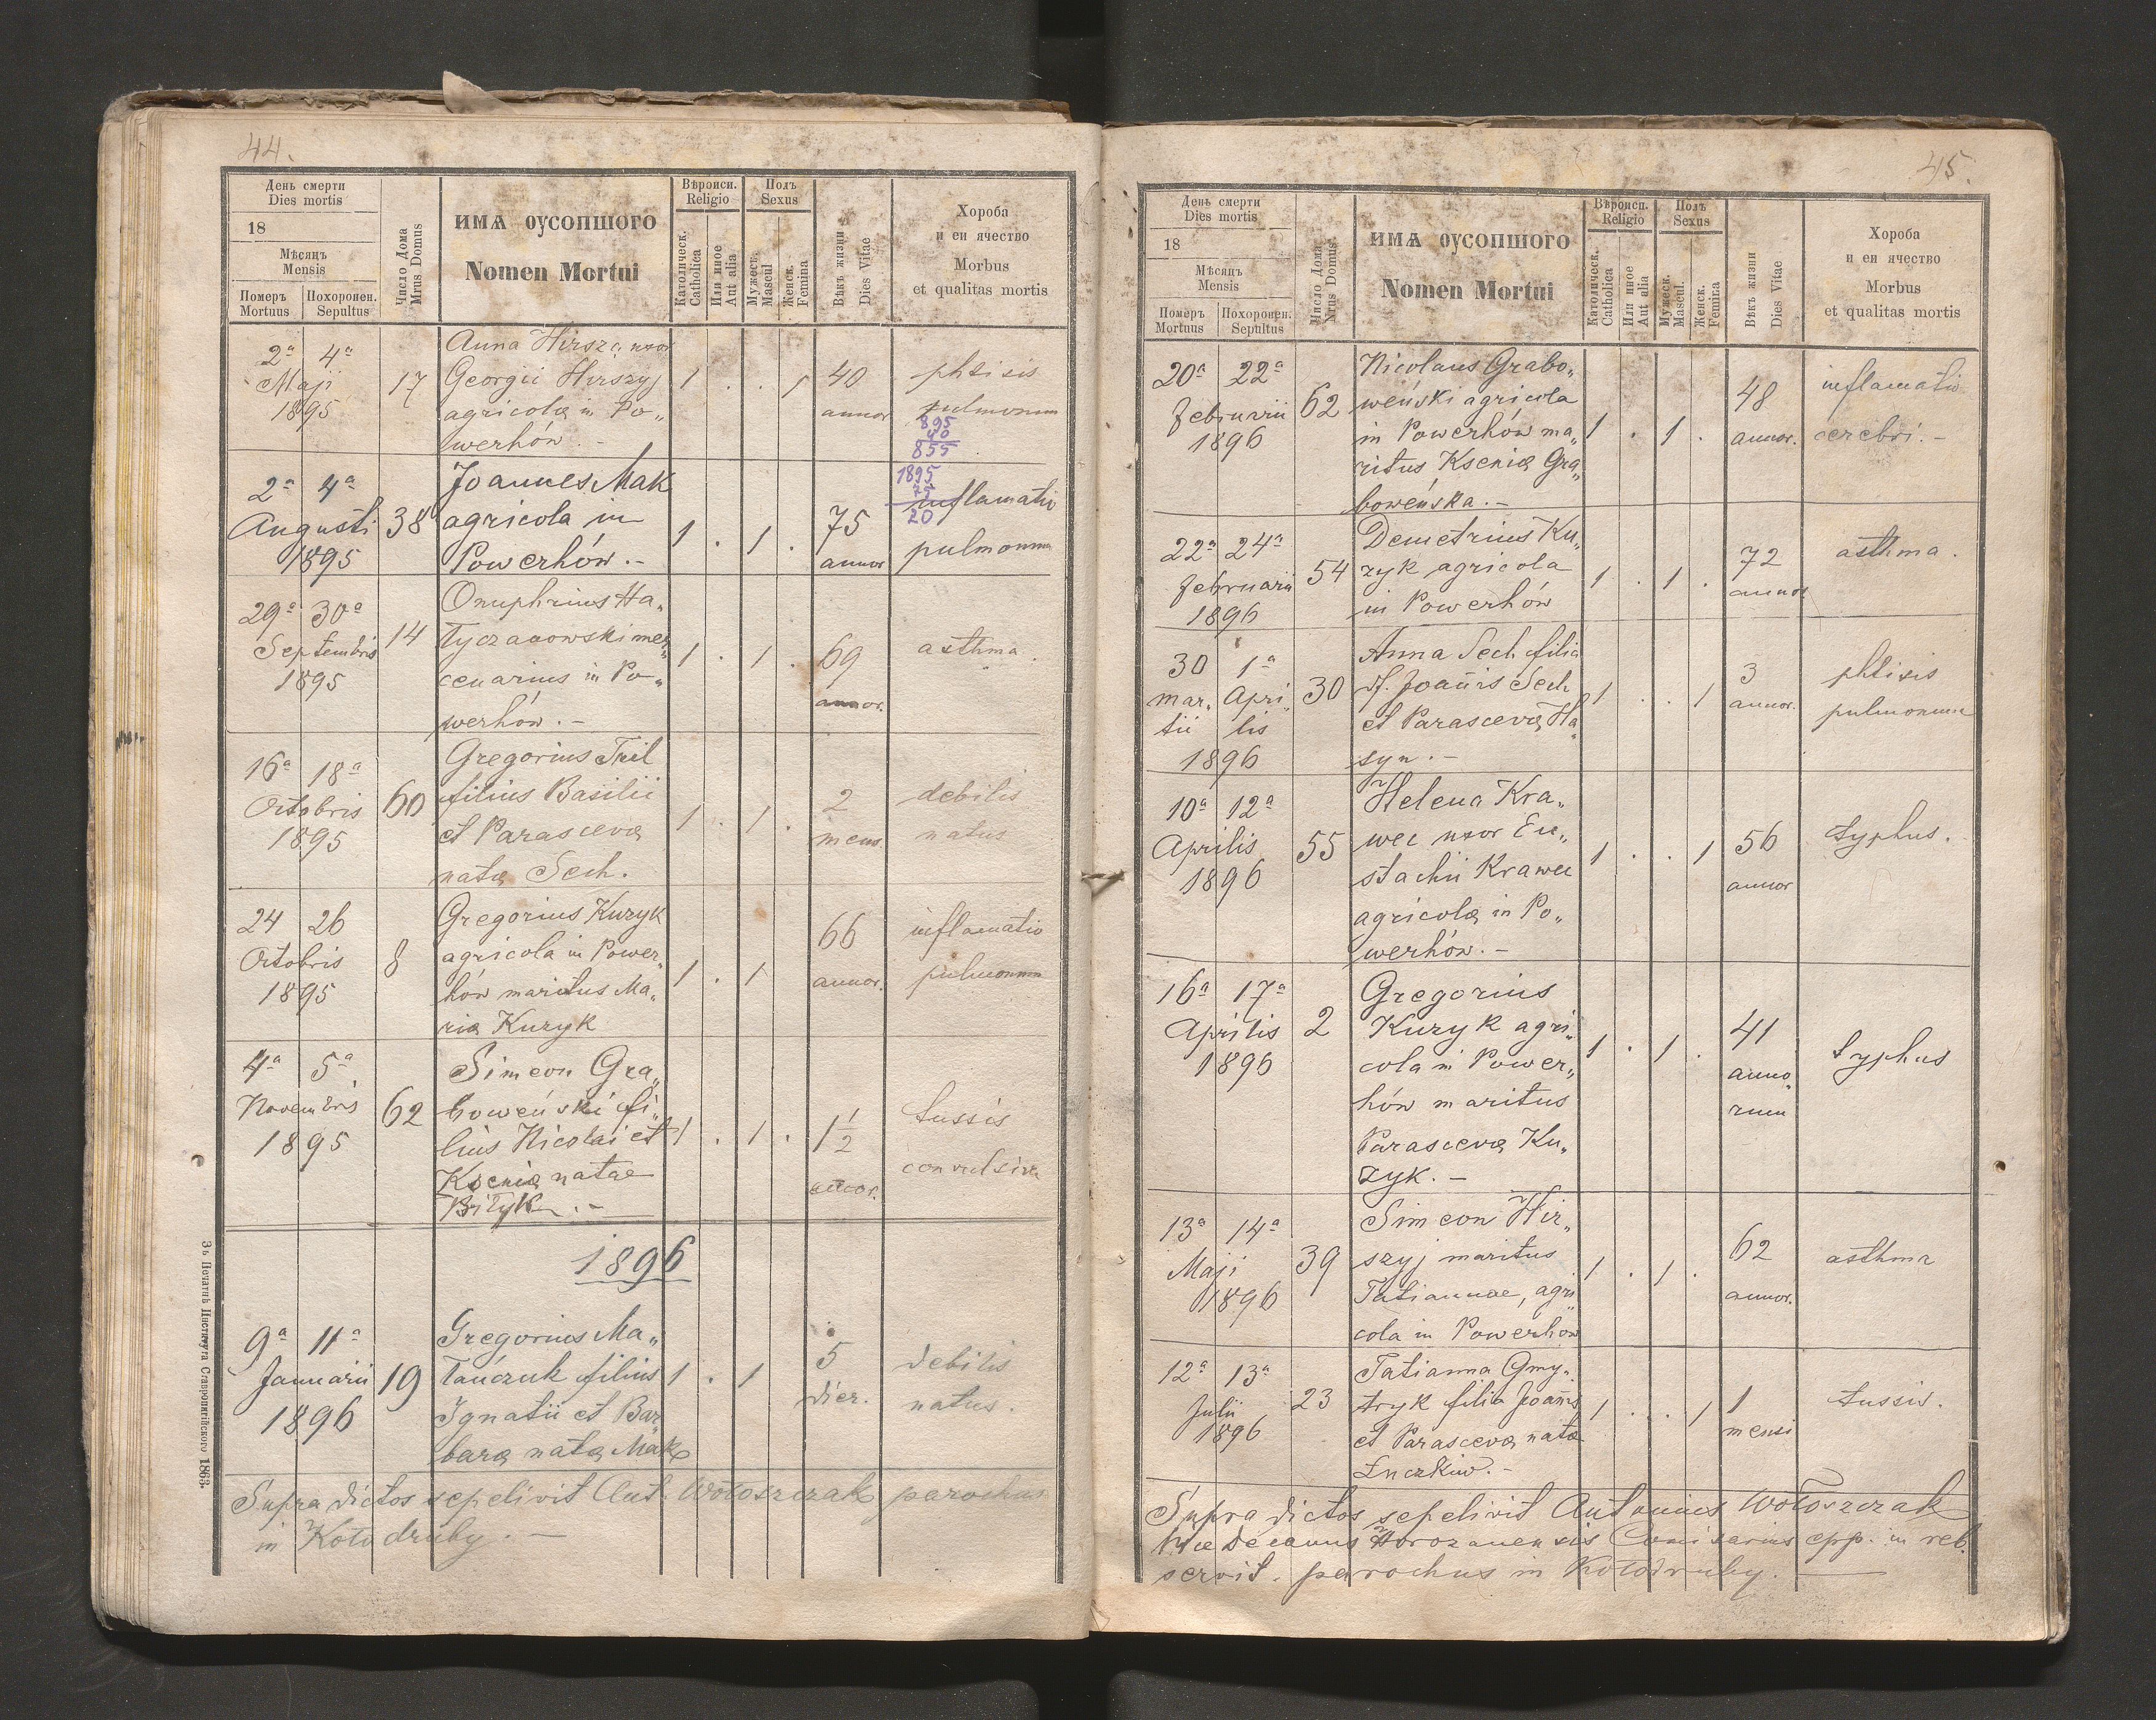 44.
День смерти
Dies mortis
18
Мѣсяцъ
Mensis
Померъ
Mortuus
Похоронен.
Sepultus
Число Дома
Mrus Domus
ИМѦ ОУСОПШОГО
Nomen Mortui
Вѣроисп.
Religio
Католическ.
Catholica
Или иное
Aut alia
Полъ
Sexus
Мужеск.
Mascul
Женск.
Femina
Вѣкъ жизни
Dies Vitae
Хороба
и еи ячество
Morbus
et qualitas mortis
2ª 4ª
Maji
1895
17
Anna Hirsza uxor
Georgii Hirszyj
agricolæ in Po„
werhów. -
1 . . 1
40
annor
phtisis
pulmonum
895
40
855
2ª 4ª
Augusti
1895
38
Joannes Mak
agricola in
Powerhów. -
1 . 1 .
75
annor
1895
75
20
inflamatio
pulmonum
29ª 30ª
Septembris
1895
14
Onuphrius Ha„
łyczanowski mer„
cenarius in Po„
werhów. -
1 . 1 .
69
annor.
asthma.
16ª 18ª
Octobris
1895
60
Gregorius Tril
filius Basilii
et Parascevæ
natæ Sech.
1 . 1 .
2
mens.
debilis
natus
24 26
Octobris
1895
8
Gregorius Kuzyk
agricola in Power„
hów maritus Ma„
riæ Kuzyk
1 . 1
66
annor.
inflamatio
pulmonum
4ª 5ª
Novembris
1895
62
Simeon Gra„
boweński fi„
lius Nicolai et
Kseniæ natae
Biłyk. -
1 . 1 .
1 1/2
annor.
tussis
convulsiva
1896
9ª 11ª
Januarii
1896
19
Gregorius Ma„
łańczuk filius
Ignatii et Bar
baræ natæ Mak
1 . 1
5
dier.
debilis
natus.
Supra dictos sepelivit Ant. Wołoszczak parochus
in Kołodruby. -
Зъ Печатнѣ Института Ставропигійского 1863.
45.
День смерти
Dies mortis
18
Мѣсяцъ
Mensis
Померъ
Mortuus
Похоронен.
Sepultus
Число Дома
Nrus Domus
ИМѦ ОУСОПШОГО
Nomen Mortui
Вѣроисп.
Religio
Католическ.
Catholica
Или иное
Aut alia
Полъ
Sexus
Мужеск.
Mascul.
Женск.
Femina
Вѣкъ жизни
Dies Vitae
Хороба
и еи ячество
Morbus
et qualitas mortis
20ª 22ª
Februarii
1896
62
Nicolaus Grabo„
weński agricola
in Powerhów ma„
ritus Kseniæ Gra„
boweńska. -
1 . 1 .
48
annor.
inflamatio
cerebri. -
22ª 24ª
Februarii
1896
54
Demetrius Ku„
zyk agricola
in Powerhów
1 . 1 .
72
annor
asthma.
30 1ª
mar„ Apri„
tii lis
1896
30
Anna Sech filia
Joañis Sech
et Parascevæ Ha„
syn. -
1 . . 1
3
annor.
phtisis
pulmonum
10ª 12ª
Aprilis
1896
55
Helena Kra„
wec uxor Eu„
stachii Krawec
agricolæ in Po„
werhów. -
1 . . 1
56
annor
typhus.
16ª 17ª
Aprilis
1896
2
Gregorius
Kuzyk agri„
cola in Power„
hów maritus
Parascevæ Ku„
zyk. -
1 . 1 .
41
anno„
rum
typhus
13ª 14ª
Maji
1896
39
Simeon Hir„
szyj maritus
Tatiannae, agri„
cola in Powerhów
1 . 1 .
62
annor.
asthma
12ª 13ª
Julii
1896
23
Tatianna Gmy„
tryk filia Joañis
et Parascevæ natæ
Łuczkiw. -
1 . . 1
1
mensi
tussis.
Supra dictos sepelivit Antonius Wołoszczak
Vice decanus Horozanensis Comisarius epp. in reb.
servit. parochus in Kołodruby. -